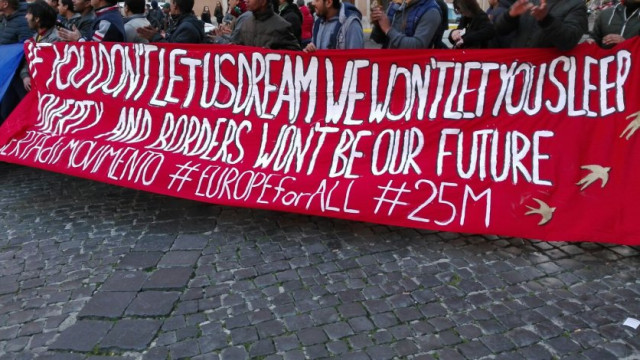 IF YOU DON'T LET US DREAM WE WON'T LET YOU SLEEP
POVERTY AND BORDERS WON'T BE OUR FUTURE
ERTÀ di MOVIMENTO #EUROPEforALL #25M